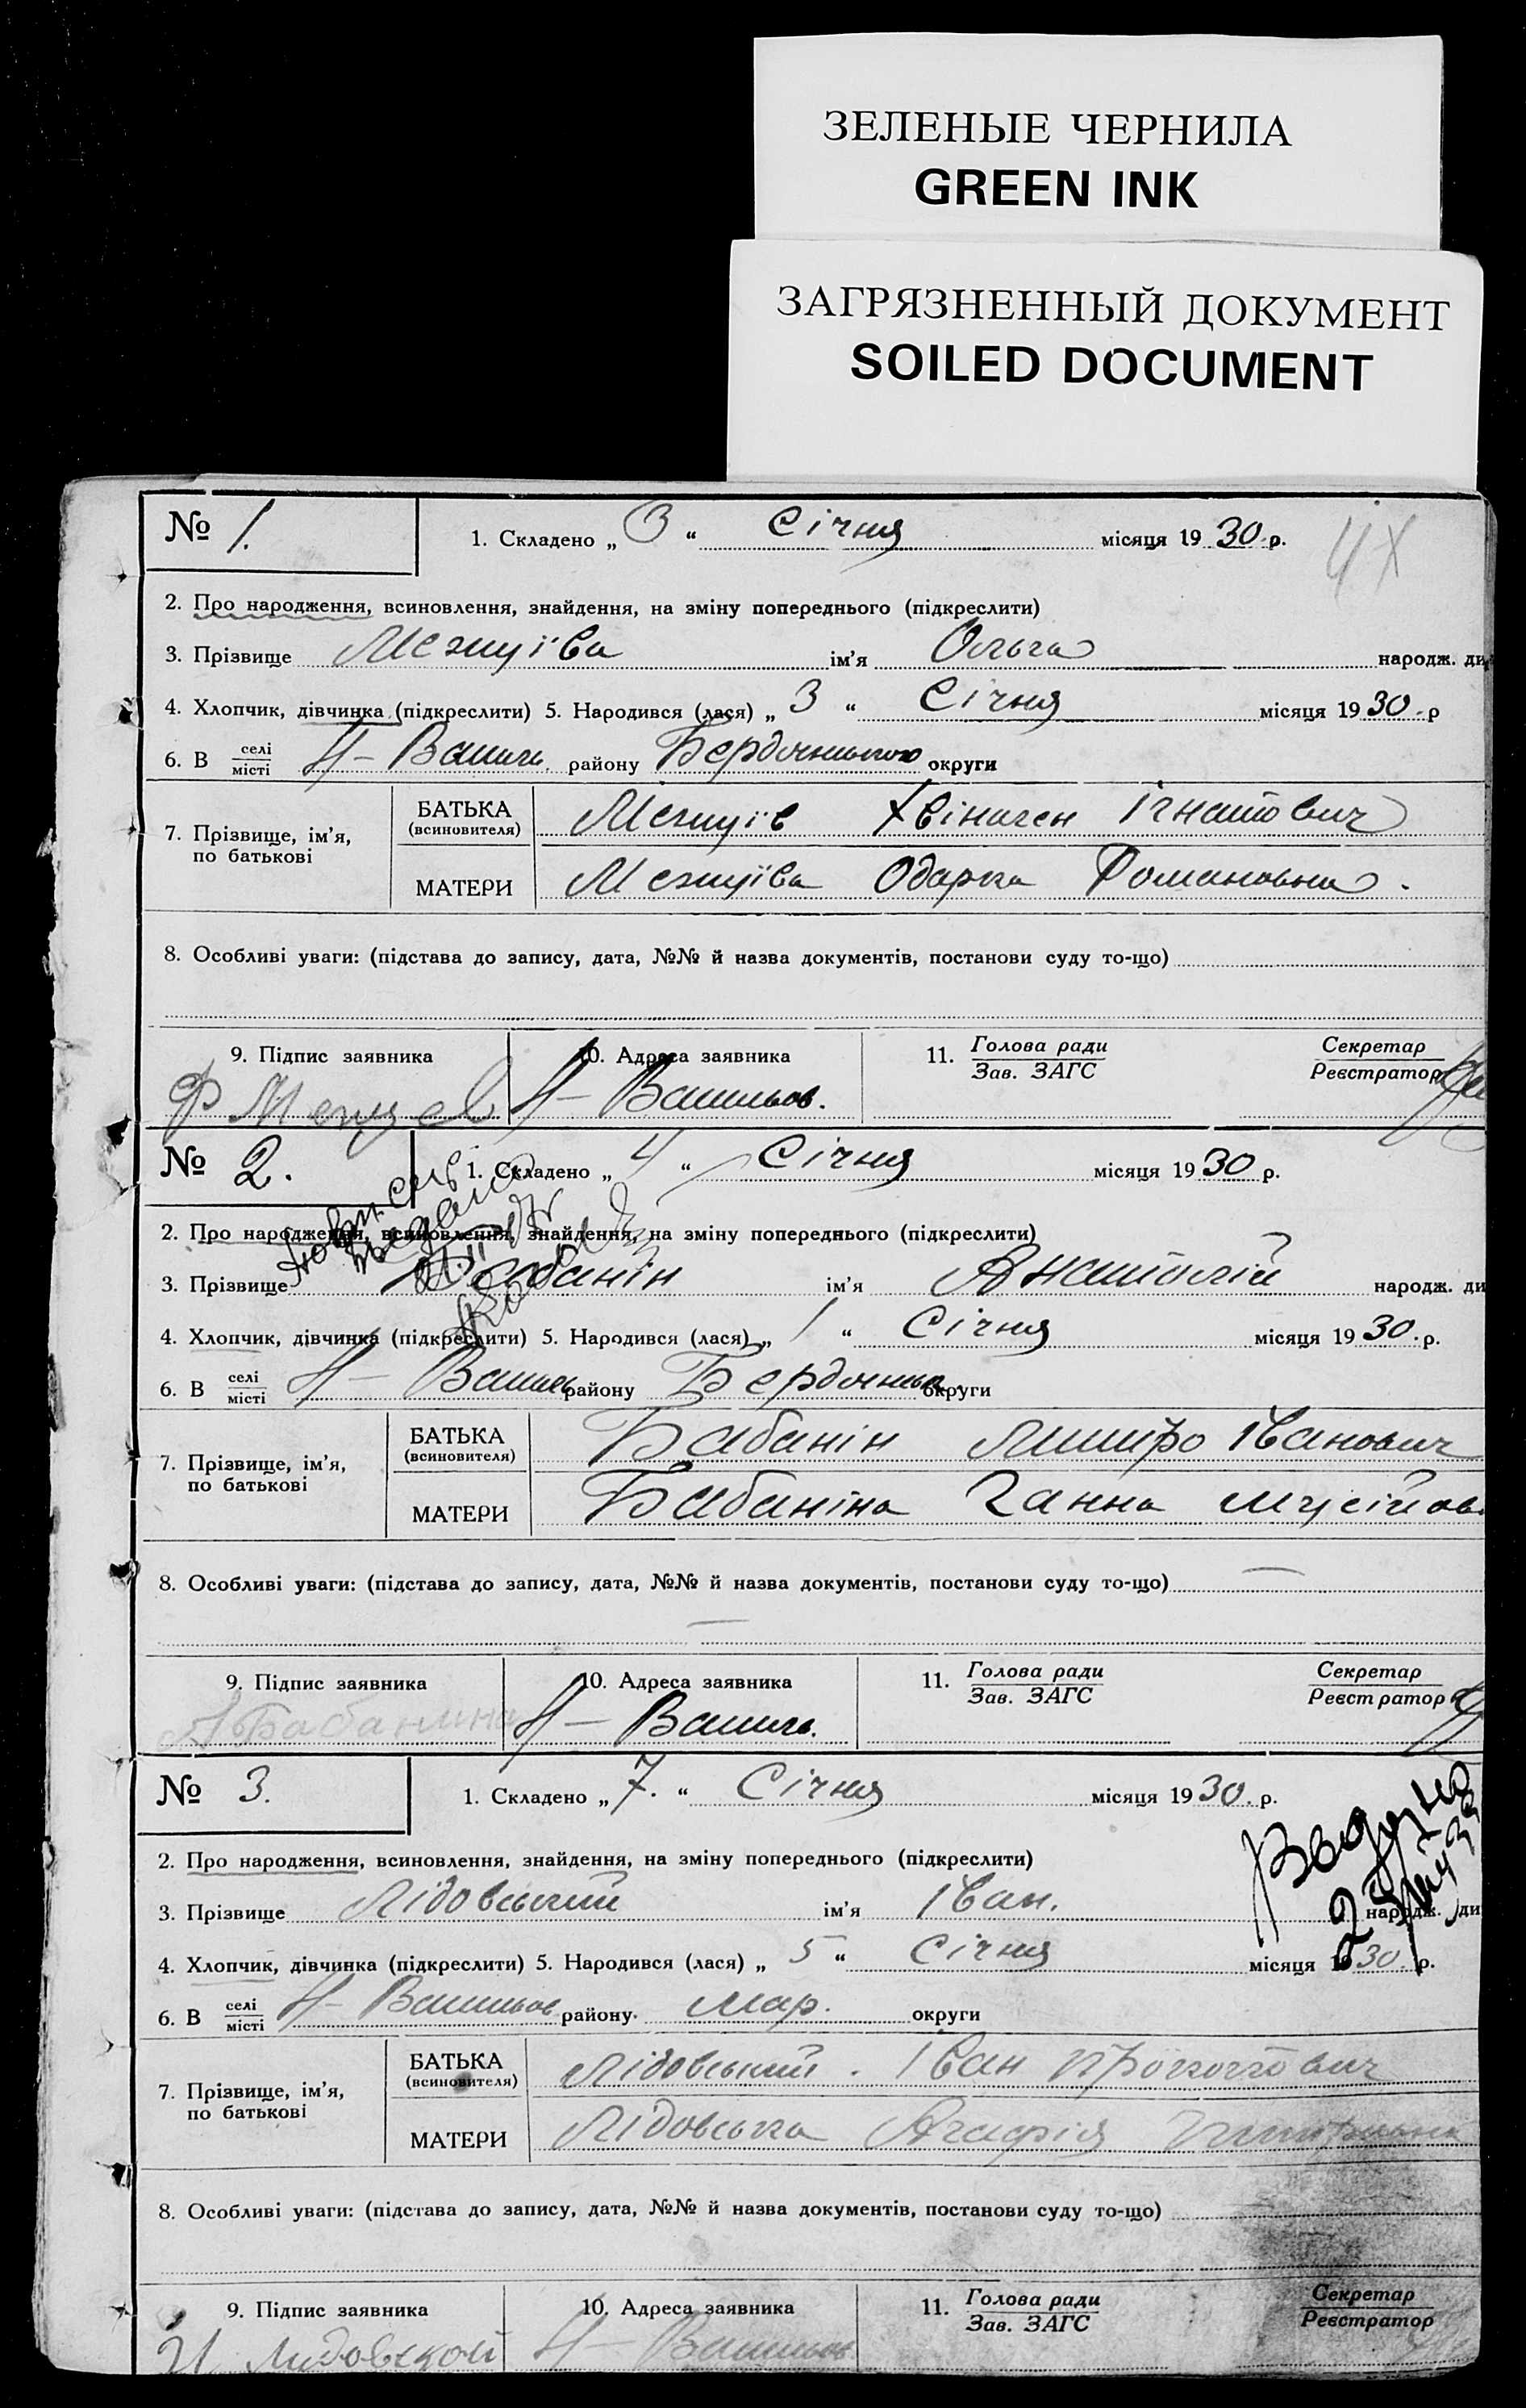 ЗЕЛЕНЫЕ ЧЕРНИЛА
GREEN INK
ЗАГРЯЗНЕННЫЙ ДОКУМЕНТ
SOILED DOCUMENT
№ 1. 1. Складено „ 3 “ Січня місяця 1930 р.
2. Про народження, всиновлення, знайдення, на зміну попереднього (підкреслити)
3. Прізвище Межуїва ім'я Ольга народж. ди
4. Хлопчик, дівчинка (підкреслити) 5. Народився (лася) „ 3 “ Січня місяця 1930. р
6. В селі місті району округи
7. Прізвище, ім'я, по батькові БАТЬКА (всиновителя) Межуїв Ігнатович
МАТЕРИ Межуїва Одарка Романовна.
8. Особливі уваги: (підстава до запису, дата, №№ й назва документів, постанови суду то-що)
9. Підпис заявника 10. Адреса заявника 11. Голова ради Зав. ЗАГС Секретар Реєстратор
№ 2. 1. Складено „ 4 “ Січня місяця 1930 р.
2. Про народження, всиновлення, знайдення, на зміну попереднього (підкреслити)
3. Прізвище Бабанін ім'я Анатолій народж. ди
4. Хлопчик, дівчинка (підкреслити) 5. Народився (лася) „ 1 “ Січня місяця 1930. р.
6. В селі місті району округи
7. Прізвище, ім'я, по батькові БАТЬКА (всиновителя) Бабанін Іванович
МАТЕРИ Бабаніна Ганна Мусійов
8. Особливі уваги: (підстава до запису, дата, №№ й назва документів, постанови суду то-що)
9. Підпис заявника 10. Адреса заявника 11. Голова ради Зав. ЗАГС Секретар Реєстратор
Бабанина
№ 3. 1. Складено „ 7. “ Січня місяця 1930. р.
2. Про народження, всиновлення, знайдення, на зміну попереднього (підкреслити)
3. Прізвище Лідовський ім'я Іван. народж. ди
4. Хлопчик, дівчинка (підкреслити) 5. Народився (лася) „ 5 “ Січня місяця 1930. р.
6. В селі місті району Мар. округи
7. Прізвище, ім'я, по батькові БАТЬКА (всиновителя) Лідовський. Іван Прокопович
МАТЕРИ Лідовська Агафія
8. Особливі уваги: (підстава до запису, дата, №№ й назва документів, постанови суду то-що)
9. Підпис заявника 10. Адреса заявника 11. Голова ради Зав. ЗАГС Секретар Реєстратор
И Лидовской